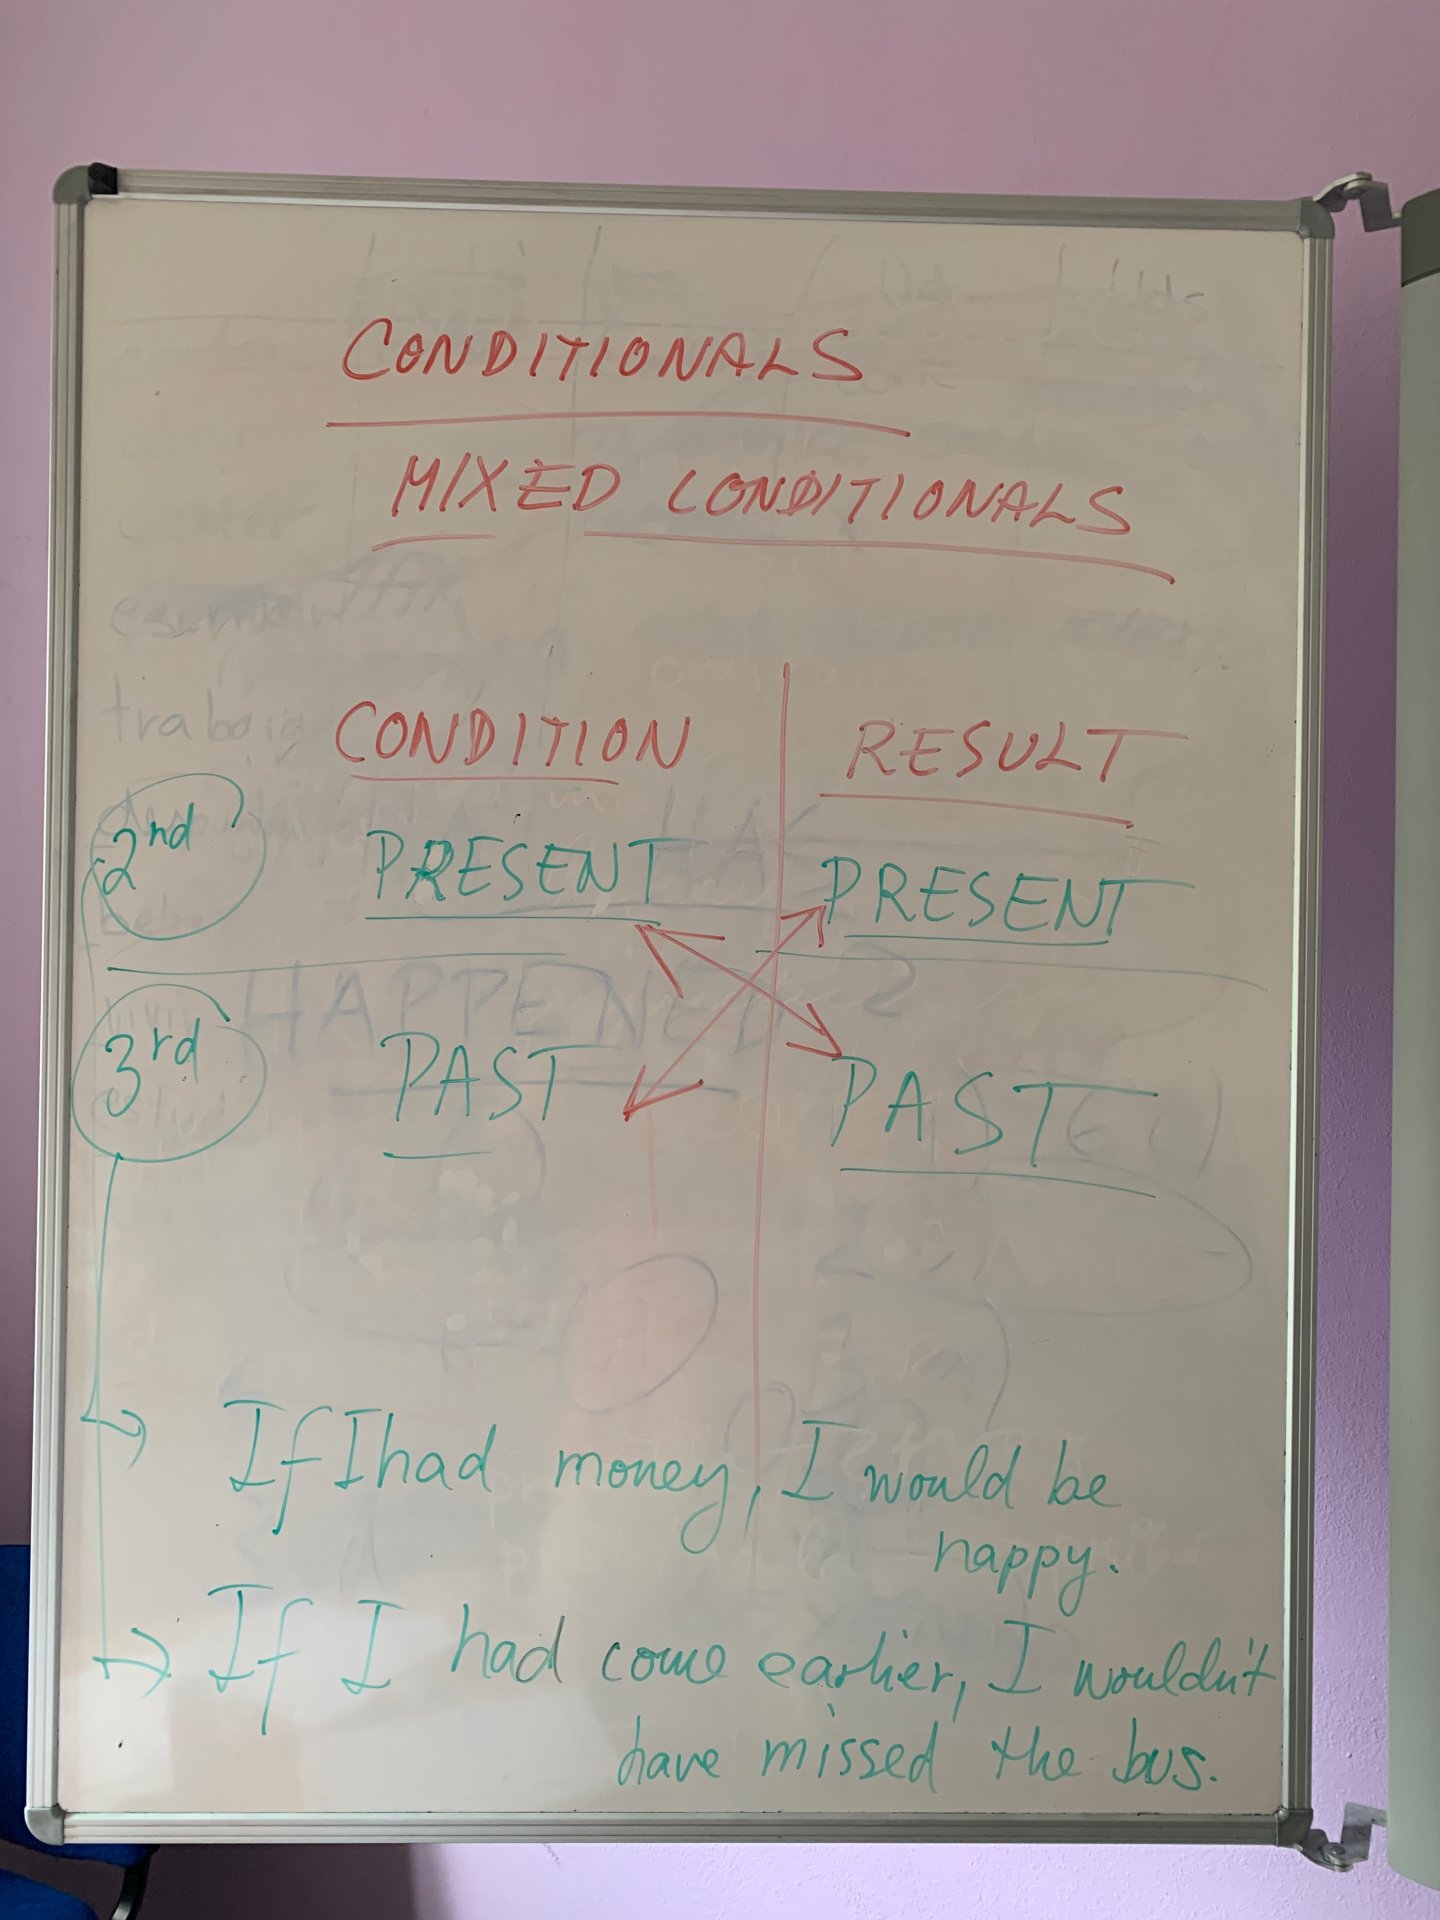 CONDITIONALS
MIXED CONDITIONALS
CONDITION RESULT
2nd PRESENT PRESENT
3rd PAST PAST
If I had money, I would be
happy.
If I had come earlier, I wouldn't
have missed the bus.
HAPPENED